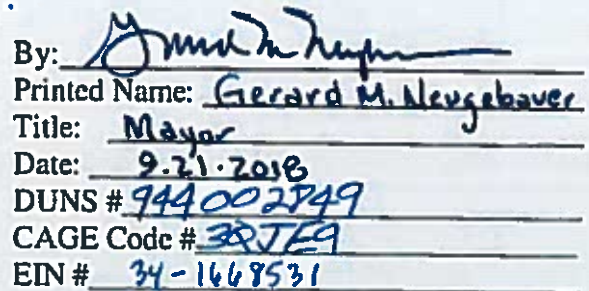 By:
Printed Name: Gerard M. Neugebauer
Title: Mayor
Date: 9.21.2018
DUNS # 944002849
CAGE Code # 3QJE9
EIN # 34-1668531